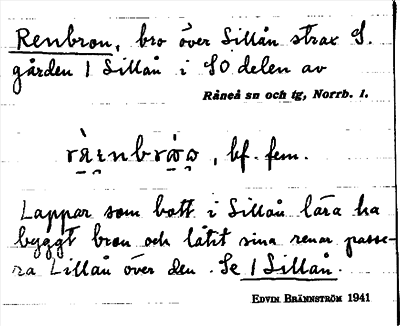 Renbron, bro över Lillån strax S.
gården 1 Lillån i SO delen av
Råneå sn och tg, Norrb. l.
bf. fem.
Lappar som bott i Lillån lära ha
byggt bron och låtit sina renar passe-
ra Lillån över den. Se 1 Lillån.
EDVIN BRÄNNSTRÖM 1941